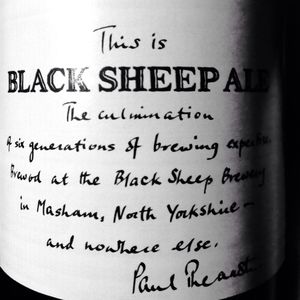 This is
BLACK SHEEP ALE
The culmination
of six generations of brewing expertise.
Brewed at the Black Sheep Brewery
in Masham, North Yorkshire -
and nowhere else.
Paul